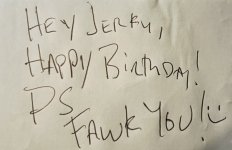 HEY JERKY,
HAPPY BIRTHDAY!
PS
FAWK YOU! :)